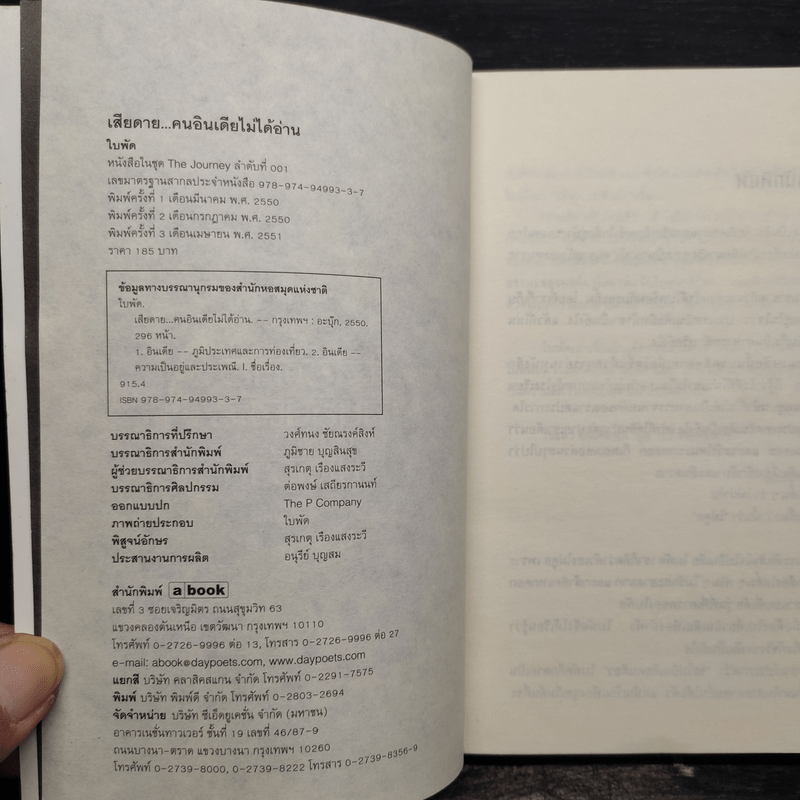 เสียดาย...คนอินเดียไม่ได้อ่าน
ใบพัด
หนังสือในชุด The Journey ลำดับที่ 001
เลขมาตรฐานสากลประจำหนังสือ 978-974-94993-3-7
พิมพ์ครั้งที่ 1 เดือนมีนาคม พ.ศ. 2550
พิมพ์ครั้งที่ 2 เดือนกรกฎาคม พ.ศ. 2550
พิมพ์ครั้งที่ 3 เดือนเมษายน พ.ศ. 2551
ราคา 185 บาท
ข้อมูลทางบรรณานุกรมของสำนักหอสมุดแห่งชาติ
ใบพัด.
เสียดาย...คนอินเดียไม่ได้อ่าน. -- กรุงเทพฯ : อะบุ๊ก, 2550.
296 หน้า.
1. อินเดีย -- ภูมิประเทศและการท่องเที่ยว. 2. อินเดีย --
ความเป็นอยู่และประเพณี. I. ชื่อเรื่อง.
915.4
ISBN 978-974-94993-3-7
บรรณาธิการที่ปรึกษา วงศ์ทนง ชัยณรงค์สิงห์
บรรณาธิการสำนักพิมพ์ ภูมิชาย บุญสินสุข
ผู้ช่วยบรรณาธิการสำนักพิมพ์ สุรเกตุ เรืองแสงระวี
บรรณาธิการศิลปกรรม ต่อพงษ์ เสถียรกานนท์
ออกแบบปก The P Company
ภาพถ่ายประกอบ ใบพัด
พิสูจน์อักษร สุรเกตุ เรืองแสงระวี
ประสานงานการผลิต อนุรีย์ บุญสม
สำนักพิมพ์ a book
เลขที่ 3 ซอยเจริญมิตร ถนนสุขุมวิท 63
แขวงคลองตันเหนือ เขตวัฒนา กรุงเทพฯ 10110
โทรศัพท์ 0-2726-9996 ต่อ 13, โทรสาร 0-2726-9996 ต่อ 27
e-mail: abook@daypoets.com, www.daypoets.com
แยกสี บริษัท คลาสิคสแกน จำกัด โทรศัพท์ 0-2291-7575
พิมพ์ บริษัท พิมพ์ดี จำกัด โทรศัพท์ 0-2803-2694
จัดจำหน่าย บริษัท ซีเอ็ดยูเคชั่น จำกัด (มหาชน)
อาคารเนชั่นทาวเวอร์ ชั้นที่ 19 เลขที่ 46/87-9
ถนนบางนา-ตราด แขวงบางนา กรุงเทพฯ 10260
โทรศัพท์ 0-2739-8000, 0-2739-8222 โทรสาร 0-2739-8356-9